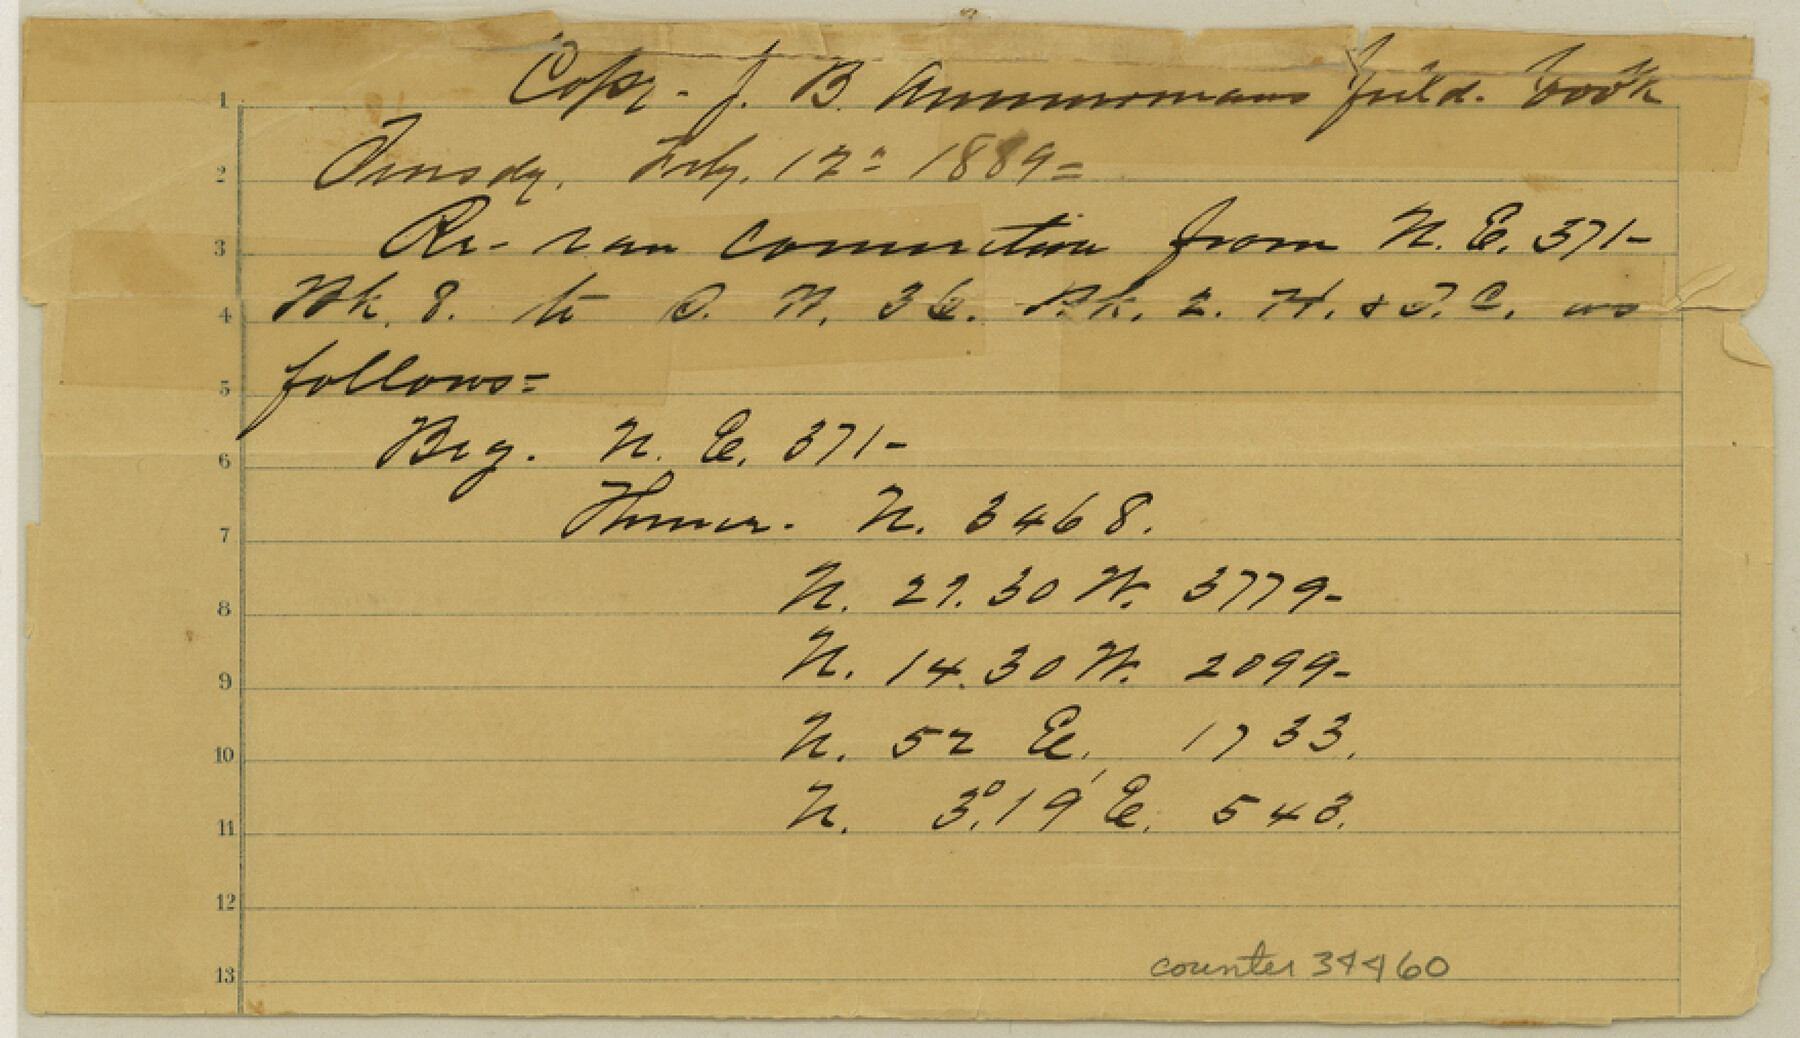 1 Copy - J. B. Ammermans field book
2 Tuesdy, Feby. 12" 1889=
3 Re-ran connection from N. E. 371-
4 Blk. 8. to S. W. 36. Blk. 2. H. & T. C. as
5 follows=
6 Beg. N. E. 371-
7 Thence. N. 3468.
8 N. 27.30 W. 3779-
9 N. 14.30 W. 2099-
10 N. 52 E. 1733.
11 N. 3°.19' E. 543.
12
13
counter 34460